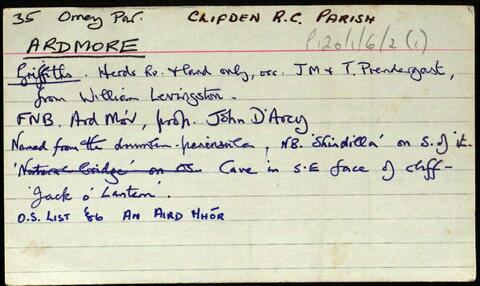 35 Omey Par. CLIFDEN R.C. PARISH
P120/1/6/2(1)
ARDMORE
Griffiths. Herds Ho. & land only, occ. JM & T. Prendergast,
from William Levingston.
FNB. Ard Mór, prop. John D'Arcy
Named from the drumlin peninsula, NB. 'Shindilla' on S. of it.
'Natural bridge' on OS. Cave in S.E face of cliff -
'Jack o' Lantern'.
O.S. LIST '86 AN AIRD MHÓR